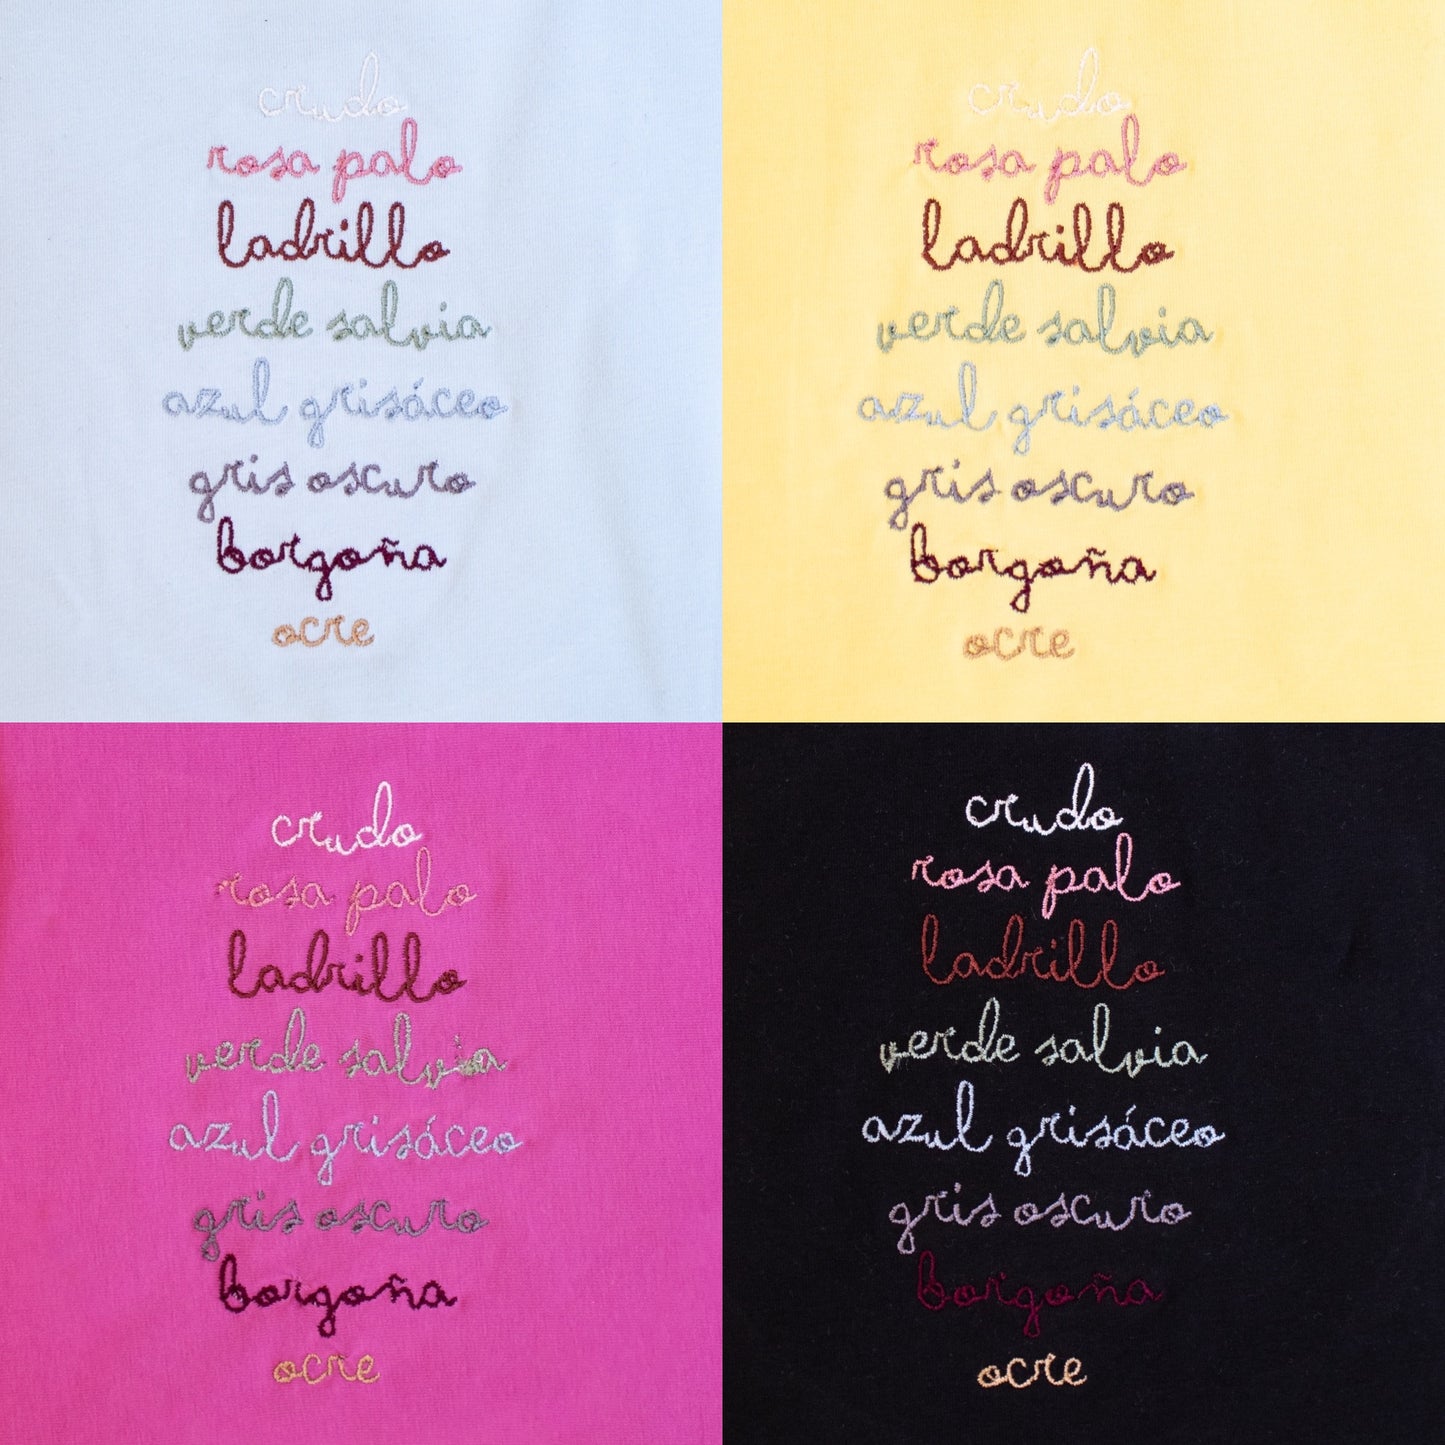 crudo
rosa palo
ladrillo
verde salvia
azul grisáceo
gris oscuro
borgoña
ocre
crudo
rosa palo
ladrillo
verde salvia
azul grisáceo
gris oscuro
borgoña
ocre
crudo
rosa palo
ladrillo
verde salvia
azul grisáceo
gris oscuro
borgoña
ocre
crudo
rosa palo
ladrillo
verde salvia
azul grisáceo
gris oscuro
borgoña
ocre